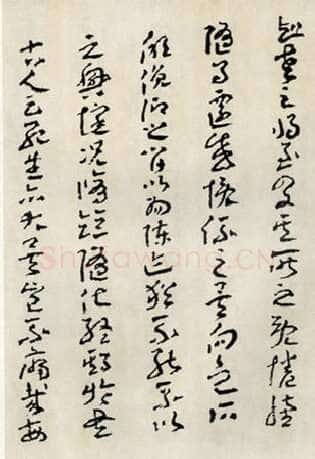 知老之將至及其所之既惓情
隨事遷感慨係之矣向之所
欣俛仰之間以為陳迹猶不能不以
之興懷況脩短隨化終期於盡
古人云死生亦大矣豈不痛哉每
ShuFaWang.CN